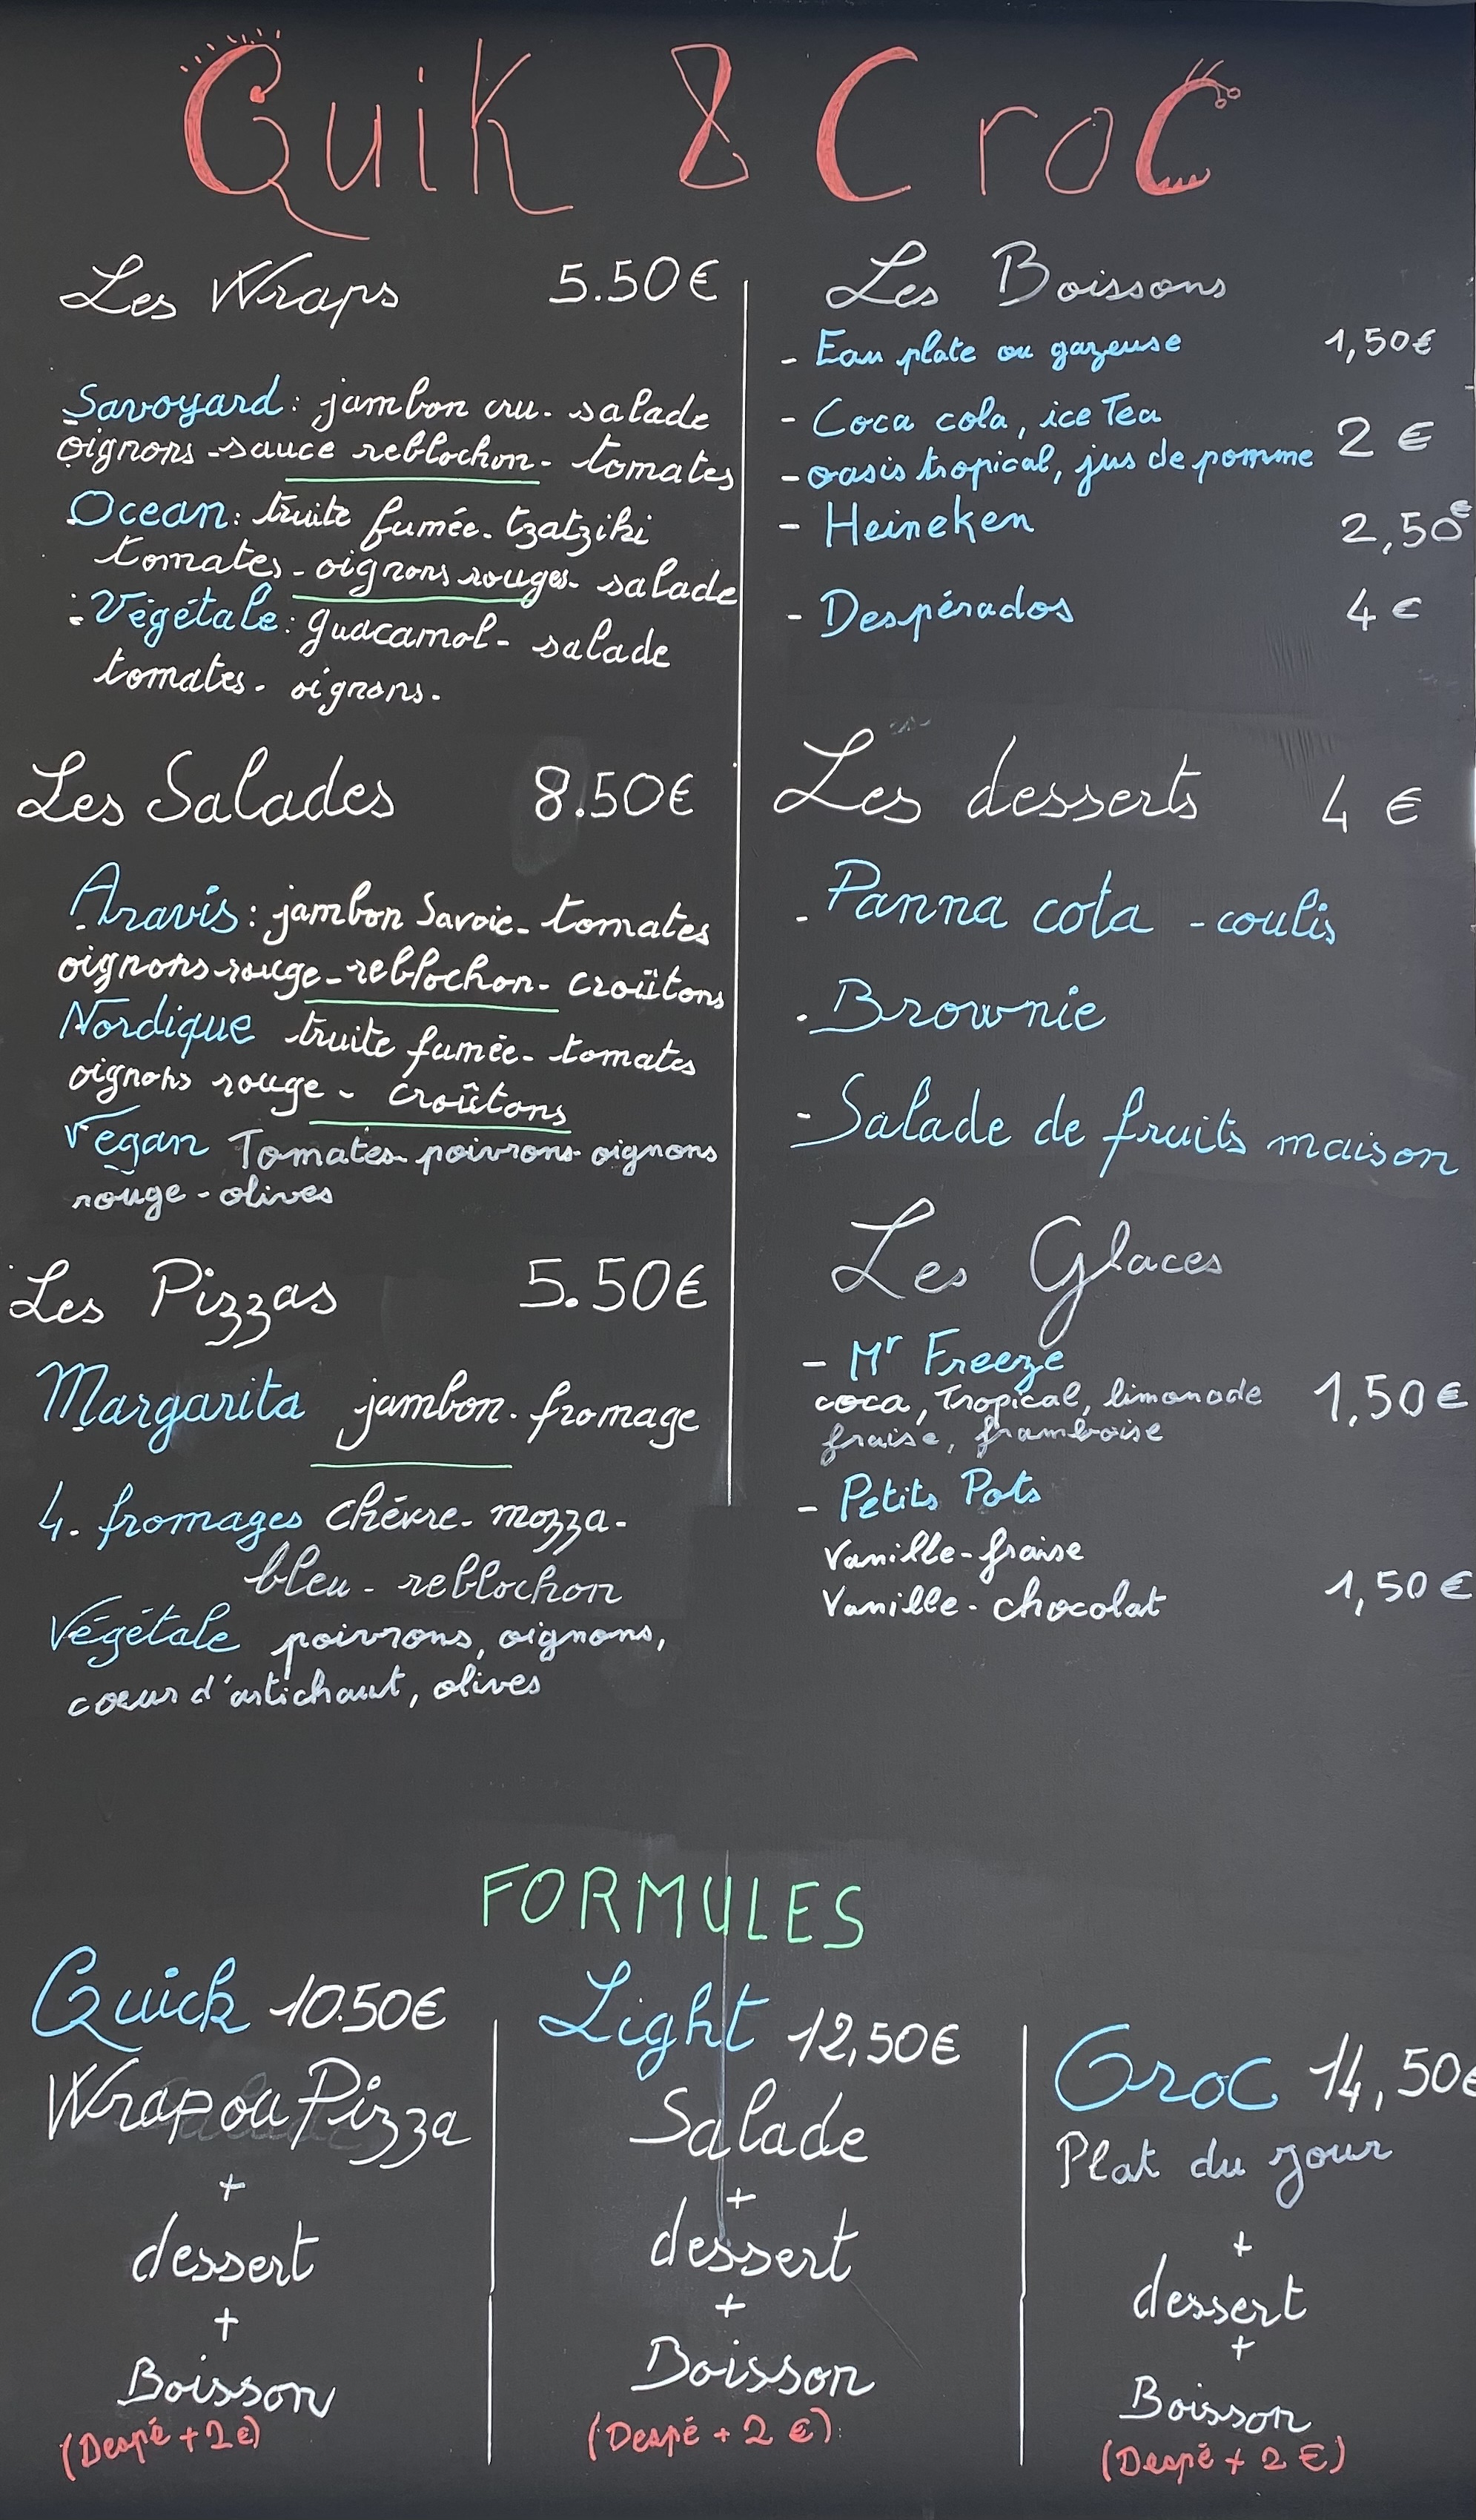 Quik & Croc
Les Wraps 5.50€
Savoyard: jambon cru - salade
oignons - sauce reblochon - tomates
Ocean: truite fumée - tzatziki
tomates - oignons rouges - salade
Végétale: guacamol - salade
tomates - oignons -
Les Salades 8.50€
Aravis: jambon Savoie - tomates
oignons rouge - reblochon - croûtons
Nordique truite fumée - tomates
oignons rouge - croûtons
Vegan Tomates - poivrons - oignons
rouge - olives
Les Pizzas 5.50€
Margarita jambon - fromage
4 - fromages Chévre - mozza -
bleu - reblochon
Végétale poivrons, oignons,
coeur d'artichaut, olives
Les Boissons
- Eau plate ou gazeuse 1,50€
- Coca cola, ice Tea
- oasis tropical, jus de pomme 2 €
- Heineken 2,50€
- Despérados 4 €
Les desserts 4 €
- Panna cota - coulis
- Brownie
- Salade de fruits maison
Les Glaces
- Mr Freeze
coca, Tropical, limonade 1,50€
fraise, framboise
- Petits Pots
Vanille - fraise
Vanille - chocolat 1,50€
FORMULES
Quick 10.50€
Wrap ou Pizza
+
dessert
+
Boisson
(Despé + 2€)
Light 12,50€
Salade
+
dessert
+
Boisson
(Despé + 2 €)
Croc 14,50€
Plat du jour
+
dessert
+
Boisson
(Despé + 2 €)